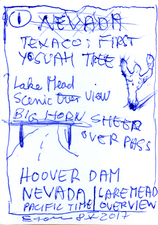 1 NEVADA
TEXACO: FIRST
YOSUAH TREE
Lake Mead
Scenic Over View
BIG HORN SHEEP
OVER PASS
HOOVER DAM
NEVADA LAKE MEAD
PACIFIC TIME OVERVIEW
2017